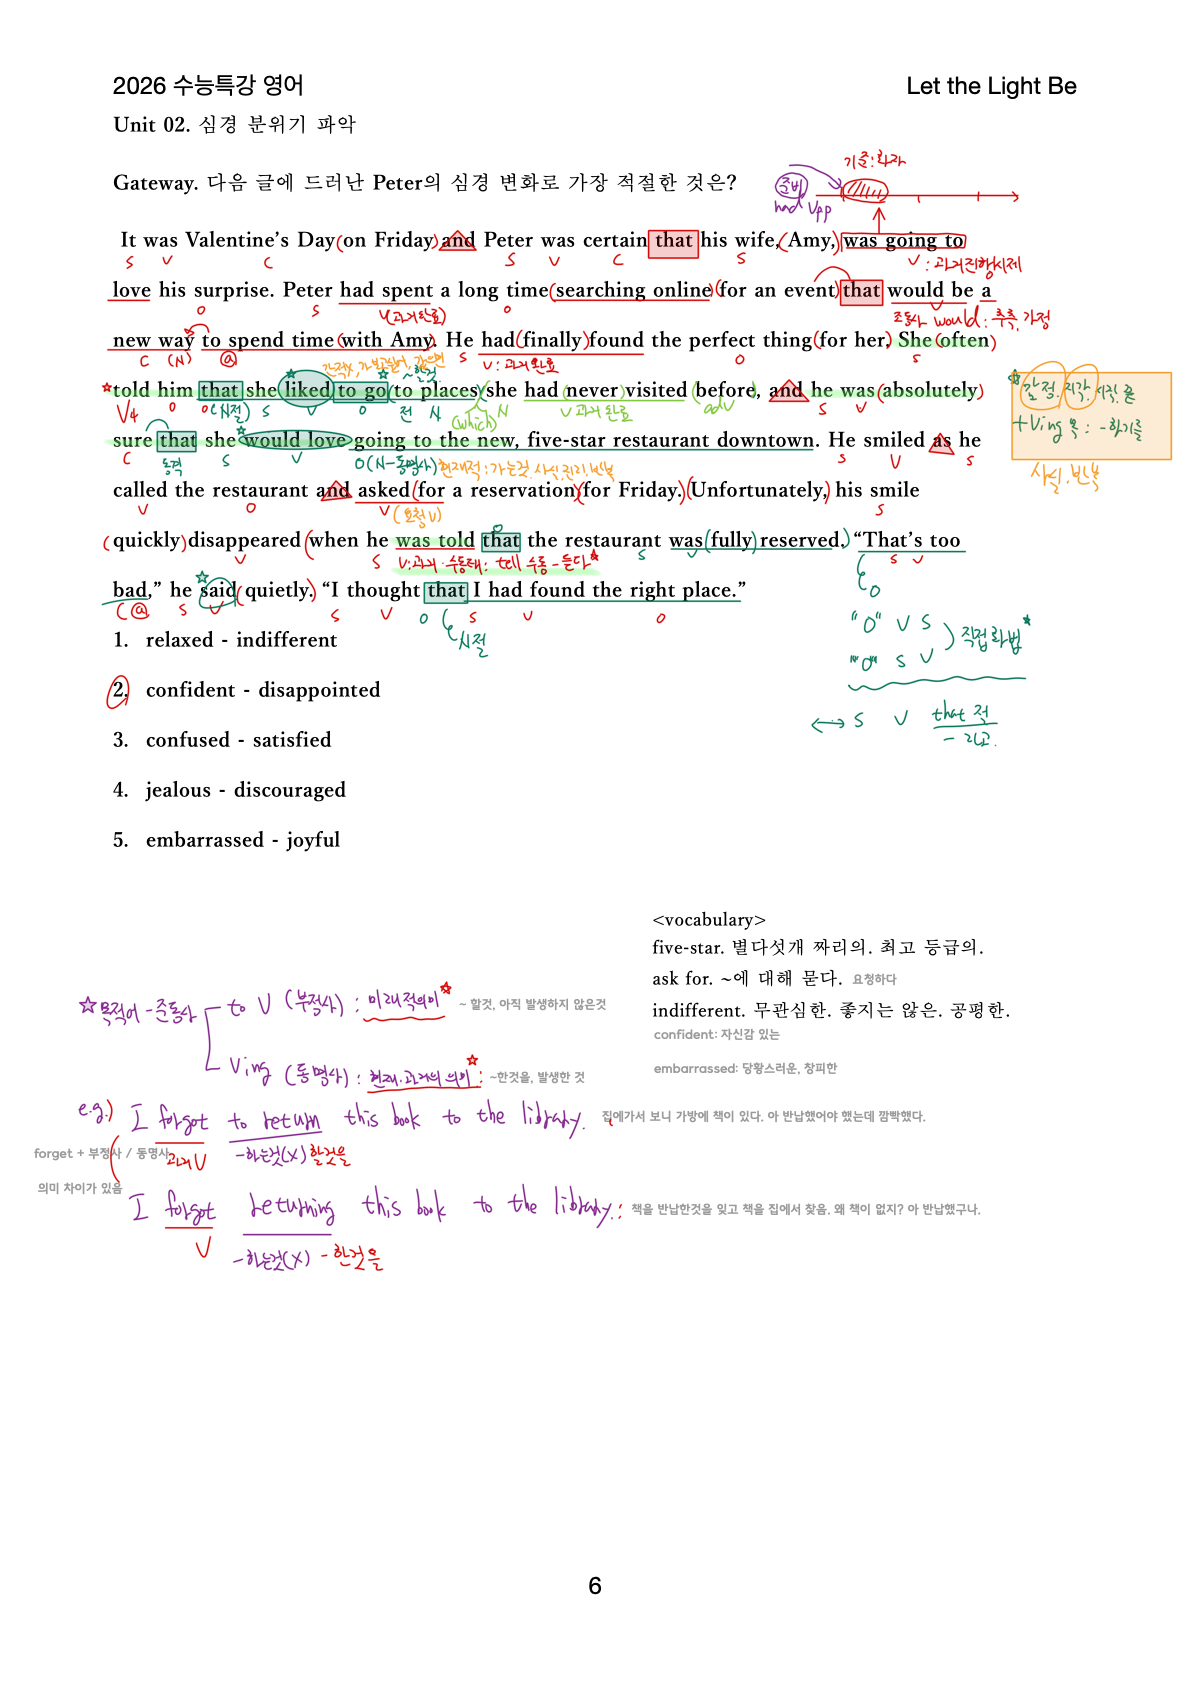 2026 수능특강 영어
Let the Light Be
Unit 02. 심경 분위기 파악
기준:화자
Gateway. 다음 글에 드러난 Peter의 심경 변화로 가장 적절한 것은?
준비
had Vpp
It was Valentine's Day (on Friday) and Peter was certain that his wife, (Amy,) was going to
S V C S V C S V : 과거진행시제
love his surprise. Peter had spent a long time (searching online) (for an event) that would be a
O S V(과거완료) O 조동사 would : 추측, 가정
new way to spend time (with Amy). He had (finally) found the perfect thing (for her). She (often)
C (N) @ S V : 과거완료 O S
~할것
told him that she liked to go (to places) she had (never) visited (before), and he was (absolutely)
V4 O O(N절) S V O 전 N (which) N V 과거완료 adv S V
감정. 지각. 시작.
+Ving 목 : -하기를
사실. 반복
sure that she would love going to the new, five-star restaurant downtown. He smiled as he
C 동격 S V O(N-동명사) 현재적 : 가는것 S V S
called the restaurant and asked (for a reservation) (for Friday.) (Unfortunately,) his smile
V O V (요청V) S
(quickly) disappeared (when he was told that the restaurant was (fully) reserved.) “That's too
V S V:과거 수동태 : tell 수동 - 듣다 S V S V
bad,” he said (quietly.) “I thought that I had found the right place.”
C @ S V S V O S V O
N절
O
"O" V S
"O" S V
직접화법
↔ S V that 절
- 라고.
1. relaxed - indifferent
2. confident - disappointed
3. confused - satisfied
4. jealous - discouraged
5. embarrassed - joyful
<vocabulary>
five-star. 별다섯개 짜리의. 최고 등급의.
ask for. ~에 대해 묻다. 요청하다
indifferent. 무관심한. 좋지는 않은. 공평한.
confident: 자신감 있는
embarrassed: 당황스러운, 창피한
☆목적어 - 준동사
to V (부정사) : 미래적의미 ~ 할것, 아직 발생하지 않은것
Ving (동명사) : 현재·과거의 의미 : ~한것을, 발생한 것
e.g.) I forgot to return this book to the library. 집에가서 보니 가방에 책이 있다. 아 반납했어야 했는데 깜빡했다.
forget + 부정사 / 동명사
과거V -하는것(X) 할것을
의미 차이가 있음
I forgot returning this book to the library. : 책을 반납한것을 잊고 책을 집에서 찾음. 왜 책이 없지? 아 반납했구나.
V -하는것(X) -한것을
6